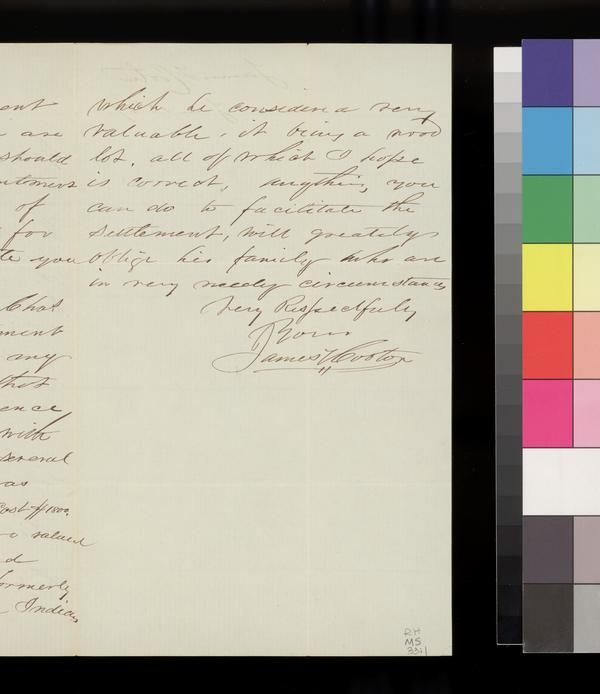 ent
are
should
of
for
te you
Chas
ment
my
that
ence
with
several
was
cost $1800.
valued
d
formerly
Indian
which he considered very
valuable, it being a wood
lot, all of which I hope
is correct, anything you
can do to facilitate the
settlement, will greatly
oblige his family who are
in very needy circumstances
Very Respectfully
Yours
James Wootton
RH
MS